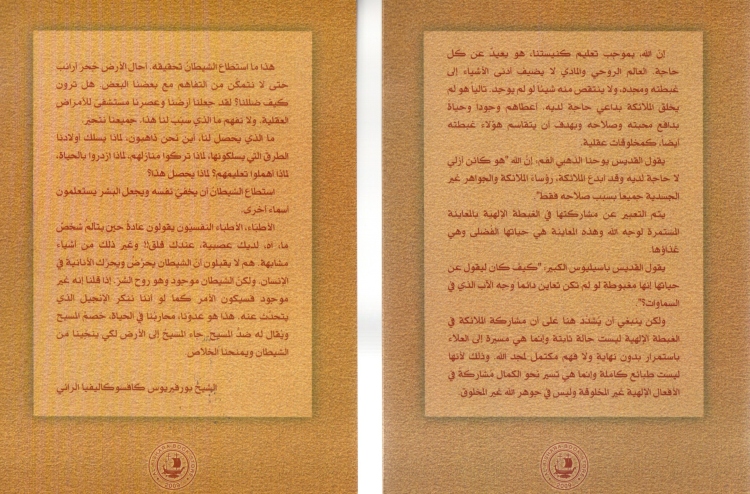 إنّ الله، بموجب تعليم كنيستنا، هو بعيدٌ عن كل
حاجة. العالم الروحي والمادي لا يضيف أدنى الأشياء إلى
غبطته ومجده، ولا ينتقص منه شيئا لو لم يوجد. تاليا هو لم
يخلق الملائكة بداعي حاجة لديه. أعطاهم وجودا وحياة
بدافع محبته وصلاحه وبهدف أن يتقاسم هؤلاء غبطته
أيضا، كمخلوقات عقلية.
يقول القديس يوحنا الذهبي الفم، إنّ الله "هو كائن أزلي
لا حاجة لديه وقد أبدع الملائكة، رؤساء الملائكة والجواهر غير
الجسدية جميعا بسبب صلاحه فقط".
يتم التعبير عن مشاركتها في الغبطة الإلهية بالمعاينة
المستمرة لوجه الله وهذه المعاينة هي حياتها الفضلى وهي
غذاؤها.
يقول القديس باسيليوس الكبير: "كيف كان ليقول عن
حياتها إنها مغبوطة لو لم تكن تعاين دائما وجه الآب الذي في
السماوات؟".
ولكن ينبغي أن يُشدد هنا على أن مشاركة الملائكة في
الغبطة الإلهية ليست حالة ثابتة وإنما هي مسيرة إلى العلاء
باستمرار بدون نهاية ولا فهم مكتمل لمجد الله. وذلك لأنها
ليست طبائع كاملة وإنما هي تسير نحو الكمال مشاركة في
الأفعال الإلهية غير المخلوقة وليس في جوهر الله غير المخلوق.
هذا ما استطاع الشيطان تحقيقه. أحال الأرض جُحرَ أرانب
حتى لا نتمكّن من التفاهم مع بعضنا البعض. هل ترون
كيف ضللنا؟ لقد جعلنا أرضنا وعصرنا مستشفى للأمراض
العقلية. ولا نفهم ما الذي سبّب لنا هذا. جميعنا نتحيّر
ما الذي يحصل لنا، أين نحن ذاهبون، لماذا يسلك أولادنا
الطرق التي يسلكونها، لماذا تركوا منازلهم، لماذا ازدروا بالحياة،
لماذا أهملوا تعليمهم؟ لماذا يحصل هذا؟
استطاع الشيطان أن يخفيَ نفسه ويجعل البشر يستعلمون
أسماء أخرى.
الأطباء، الأطباء النفسيون يقولون عادةً حين يتألم شخصٌ
ما، آه، لديك عصبية، عندك قلق!! وغير ذلك من أشياء
مشابهة. هم لا يقبلون أنّ الشيطان يحرّضُ ويحرّك الأنانية في
الإنسان. ولكنّ الشيطان موجود وهو روح الشرّ. إذا قلنا إنه غير
موجود فسيكون الأمرَ كما لو أننا ننكر الإنجيل الذي
يتحدّث عنه. هذا هو عدوّنا، محاربُنا في الحياة، خصمُ المسيح
ويُقال له ضدّ المسيح. جاء المسيحُ إلى الأرض لكي ينجّينا من
الشيطان ويمنحنا الخلاص.
الشيخ بورفيريوس كافسوكاليفيا الرائي